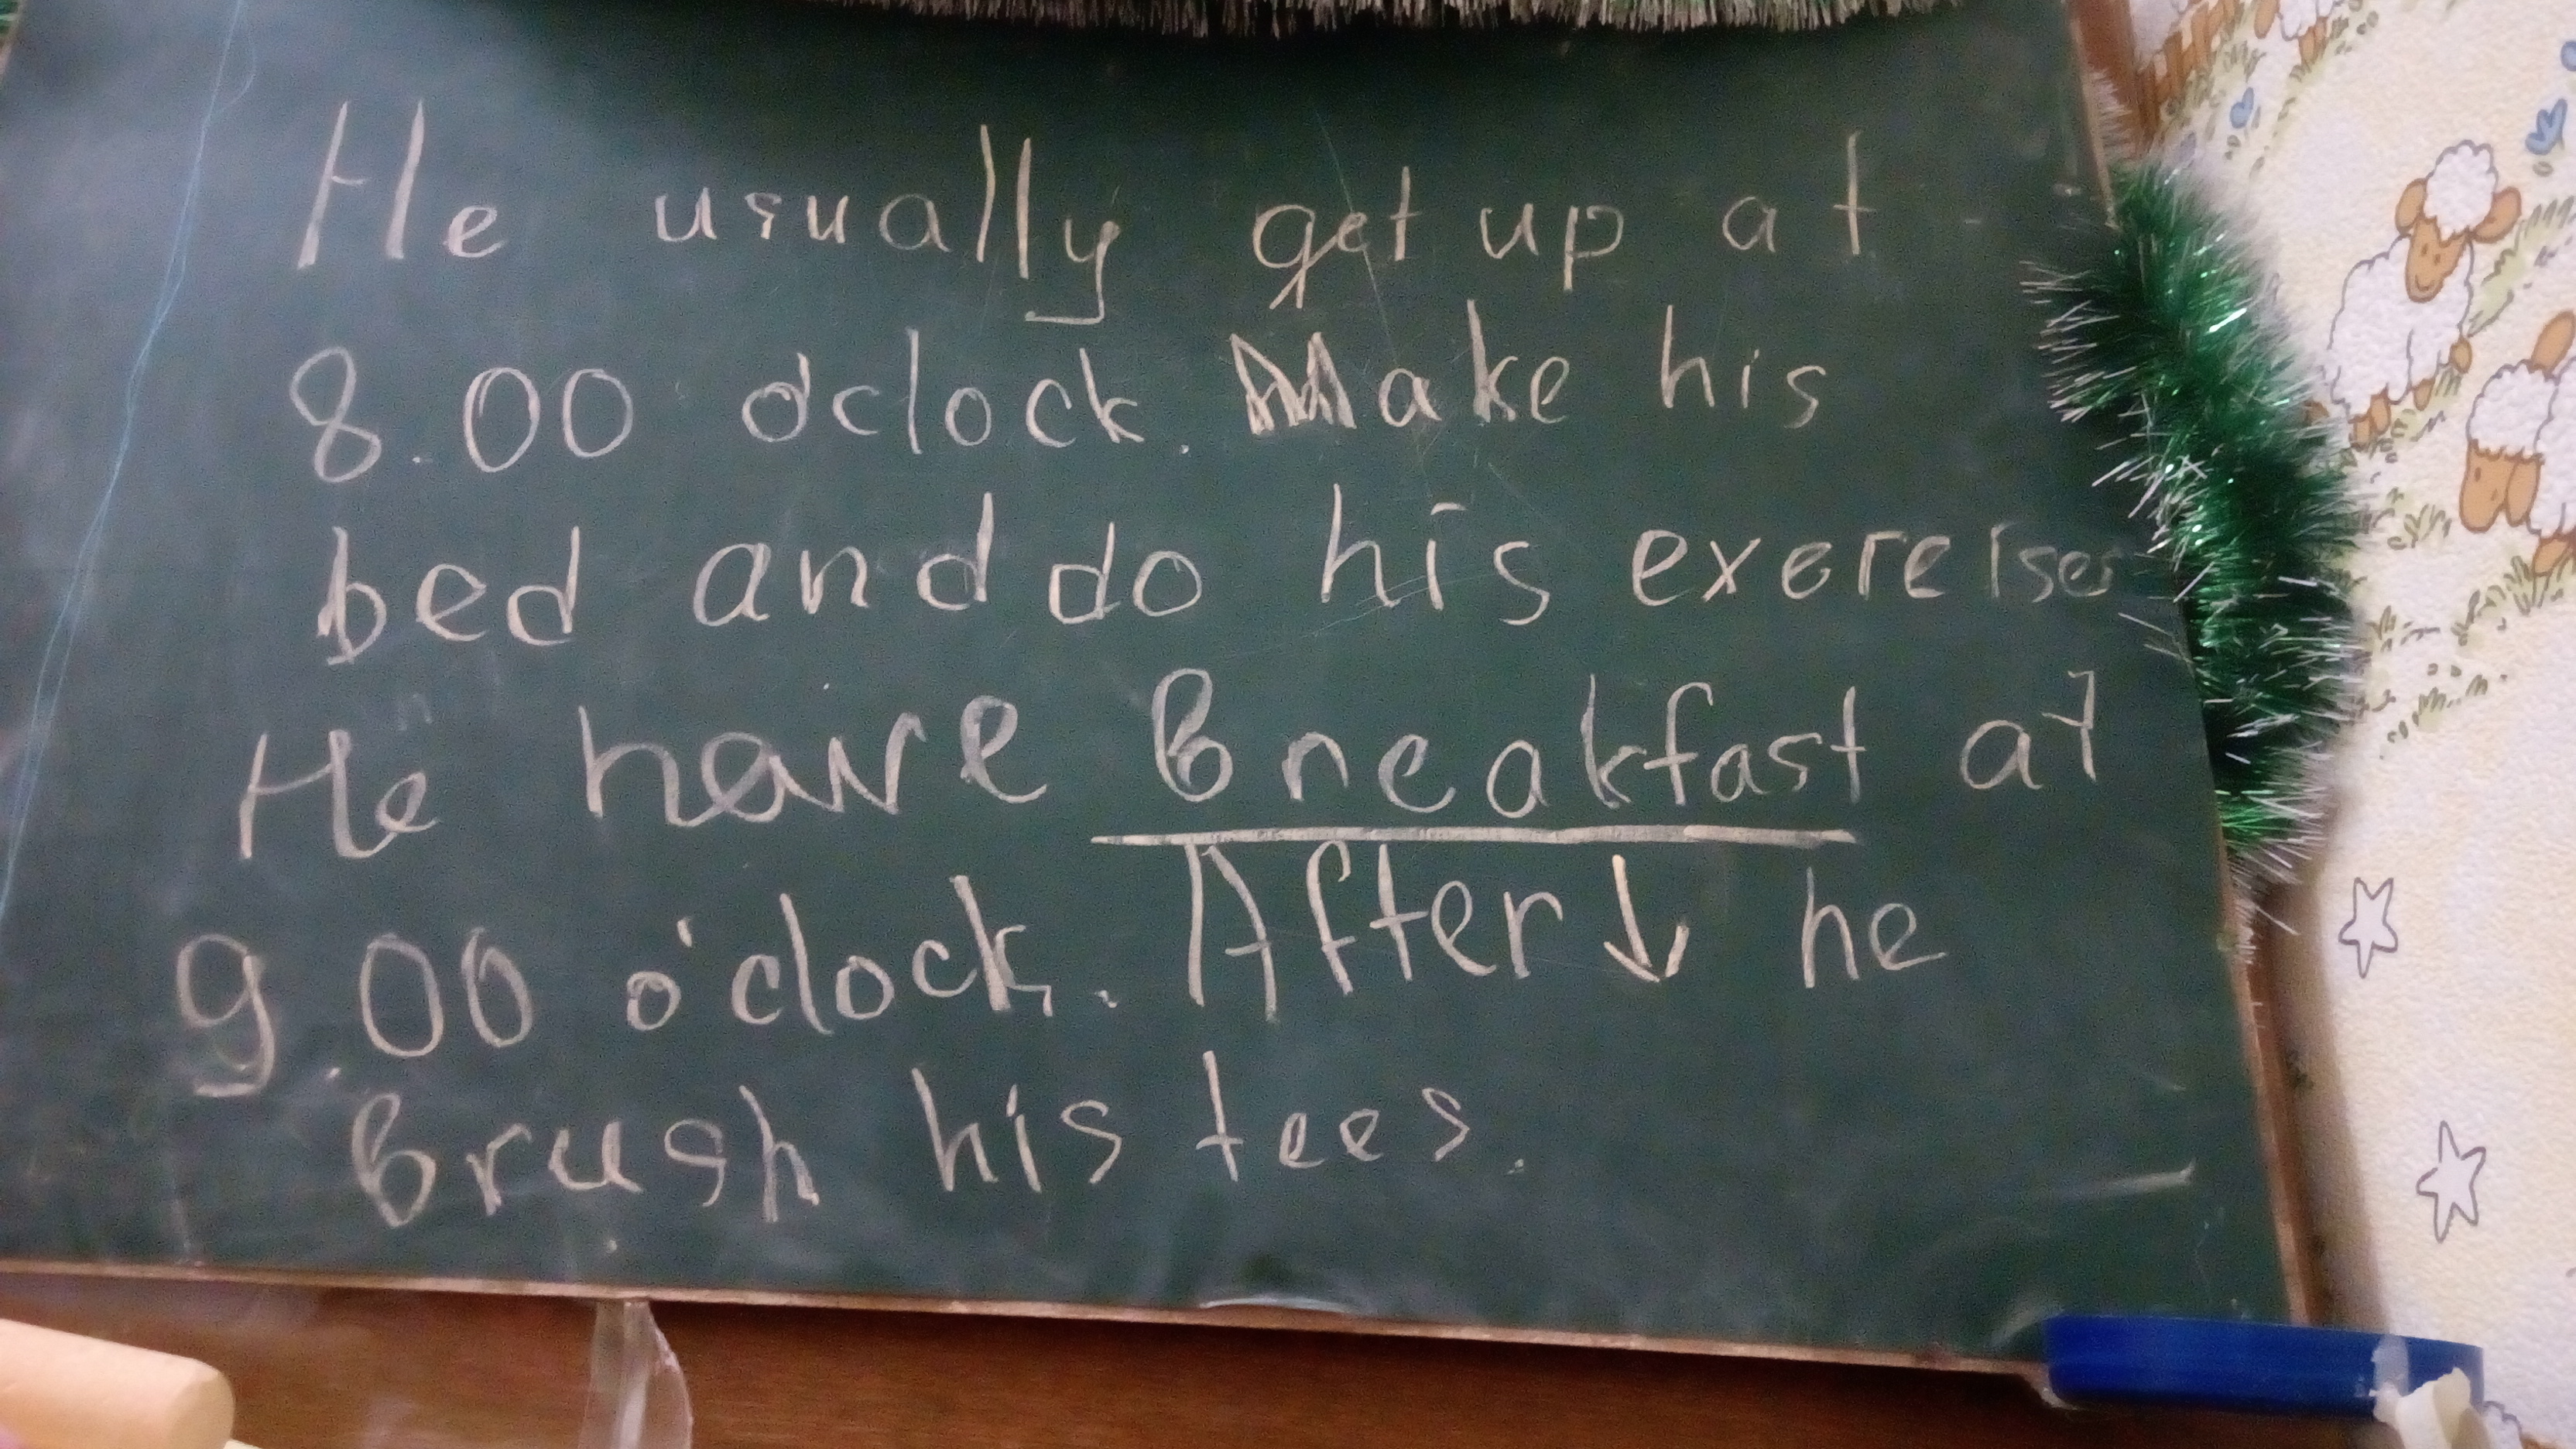 He usually get up at
8.00 o'clock. Make his
bed and do his exercises
He have Breakfast at
9.00 o'clock. After ↓ he
Brush his tees.